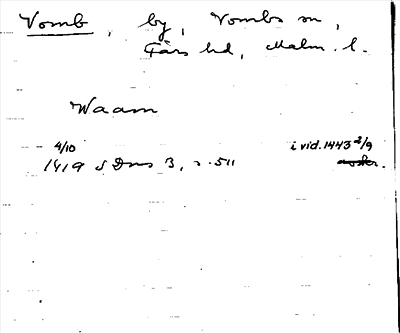 Vomb, by, Vombs sn,
Färs hd, Malm. l.
Waam
4/10 i vid. 1443 2/9
1419 SDns 3, s. 511